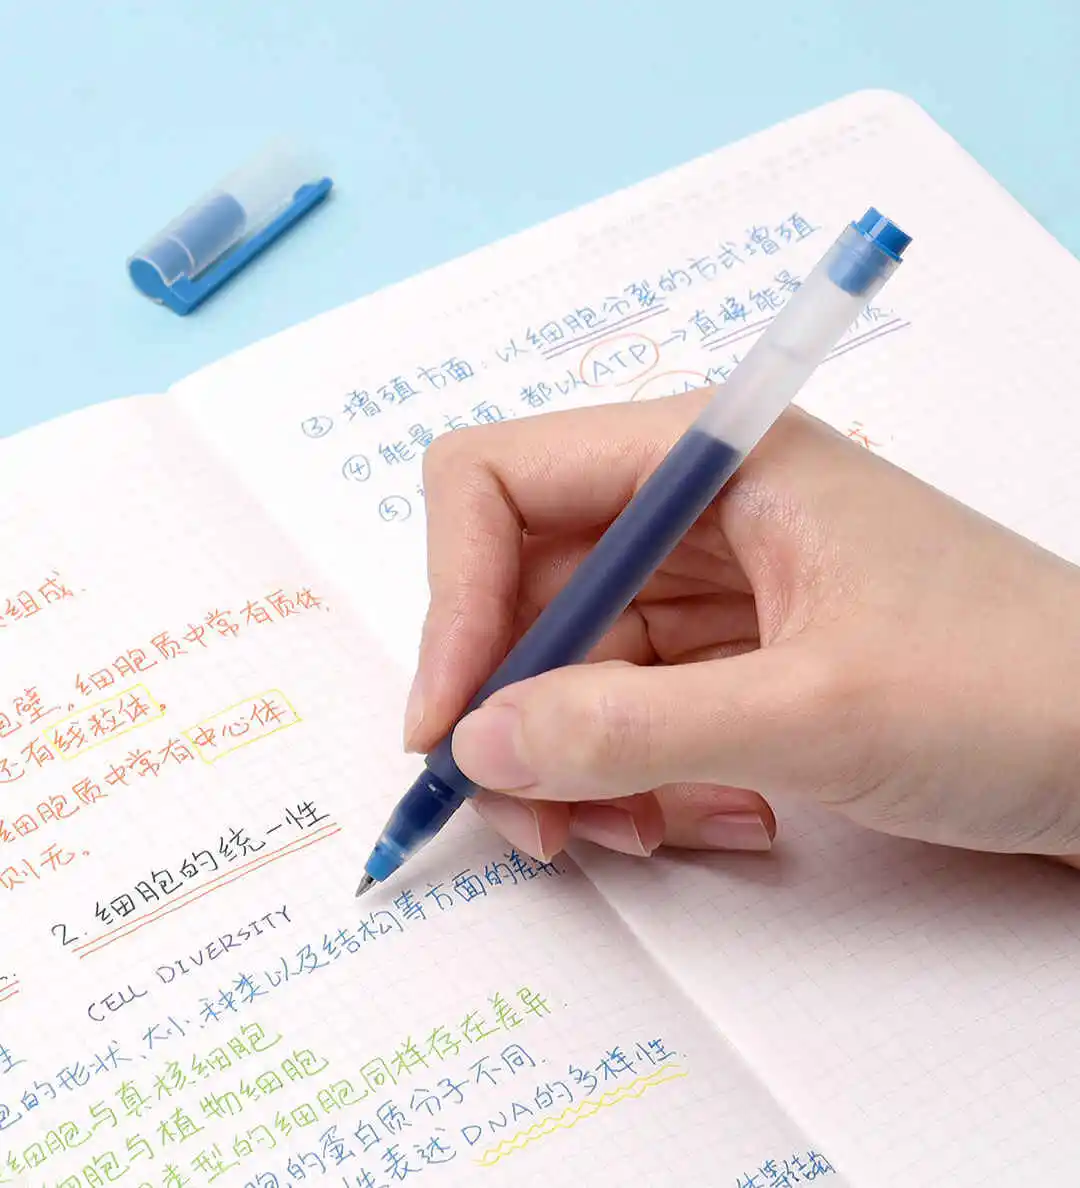 ③ 增殖方面:以细胞分裂的方式增殖
④ 能量方面:都以ATP→直接能量
⑤
组成.
壁。细胞质中常有质体,
还有线粒体。
细胞质中常有中心体,
则无。
2.细胞的统一性
CELL DIVERSITY
的形状、大小、种类以及结构等方面的差异.
细胞与真核细胞
细胞与植物细胞
类型的细胞同样存在差异.
的蛋白质分子不同.
表述DNA的多样性.
体等结构